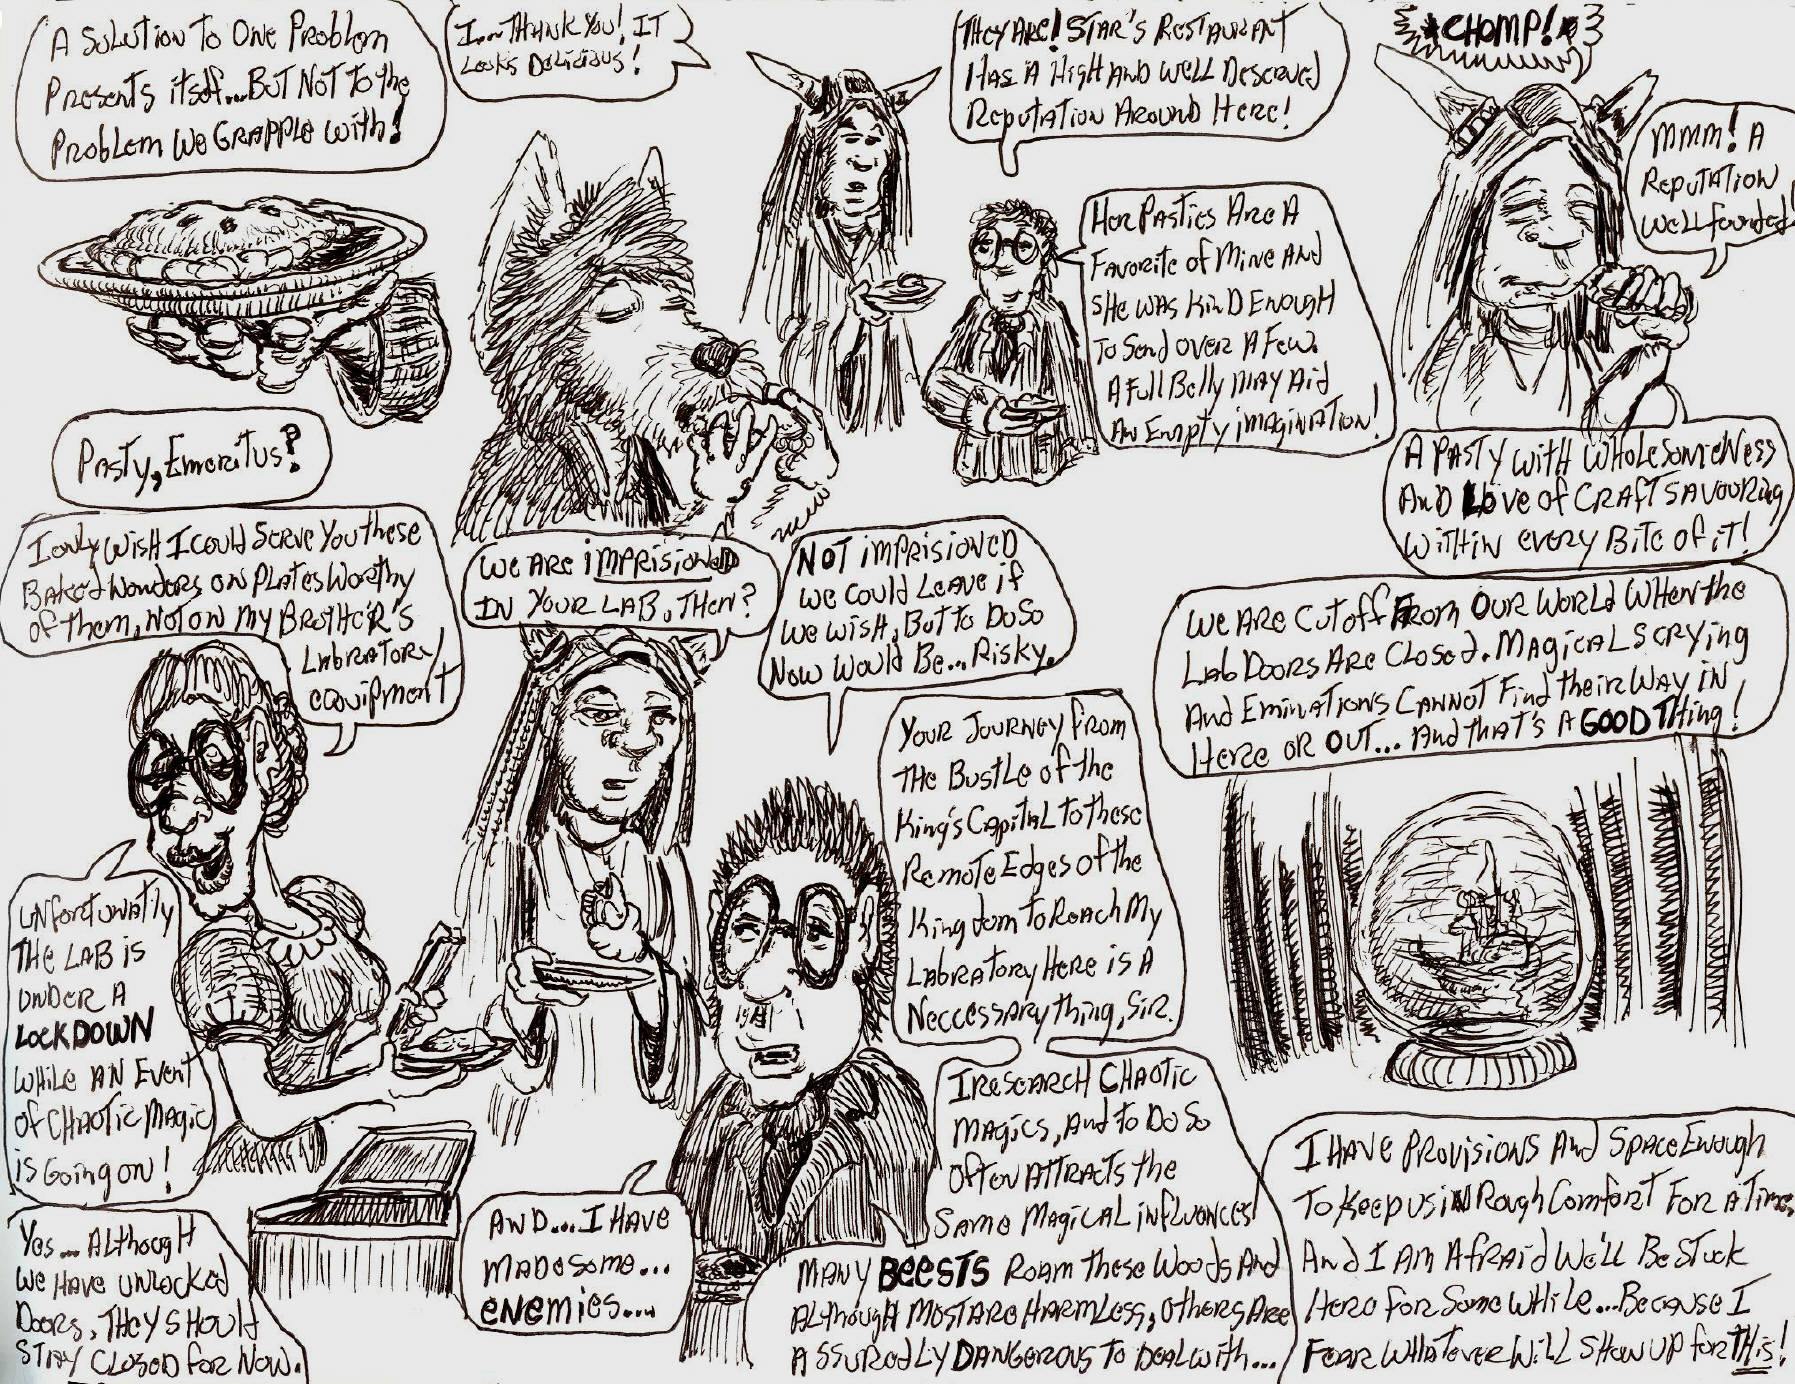 A Solution To One Problem
Presents itself...But Not To the
Problem We Grapple with!
I...Thank You! It
Looks Delicious!
They Are! Star's Restaurant
Has A High And Well Deserved
Reputation Around Here!
*CHOMP!*
Mmm! A
Reputation
Well founded!
Her Pasties Are A
Favorite of Mine And
She Was Kind Enough
To Send over A Few.
A Full Belly May Aid
An Empty imagination!
Pasty, Emeritus?
A Pasty with Wholesomeness
And Love of Craft Savouring
Within every Bite of it!
I only Wish I Could Serve You these
Baked Wonders on Plates Worthy
of them, Not on my Brother's
Labratory
equipment
We Are imprisioned
In Your Lab, Then?
Not imprisioned
We Could Leave if
We Wish, But To Do So
Now Would Be...Risky.
We Are Cutoff From Our World When the
Lab Doors Are Closed. Magical Scrying
And Eminations Cannot Find their Way in
Here or Out... And that's A Good Thing!
Your Journey from
The Bustle of the
King's Capital To these
Remote Edges of the
Kingdom to Reach My
Labratory Here is A
Neccessary thing, Sir.
Unfortunatly
The Lab is
Under A
Lockdown
While An Event
of Chaotic Magic
is Going on!
I Research Chaotic
Magics, And to Do So
Often Attracts the
Same Magical influences!
Yes... Although
We Have Unlocked
Doors, They Should
Stay Closed for Now.
And...I Have
Made some...
enemies...
Many Beests Roam These Woods And
Although Most Are Harmless, Others Are
Assuredly Dangerous To Deal with...
I Have Provisions And Space Enough
To Keep us in Rough Comfort For a Time,
And I Am Afraid We'll Be Stuck
Here for Some While...Because I
Fear Whatever Will Show up for This!